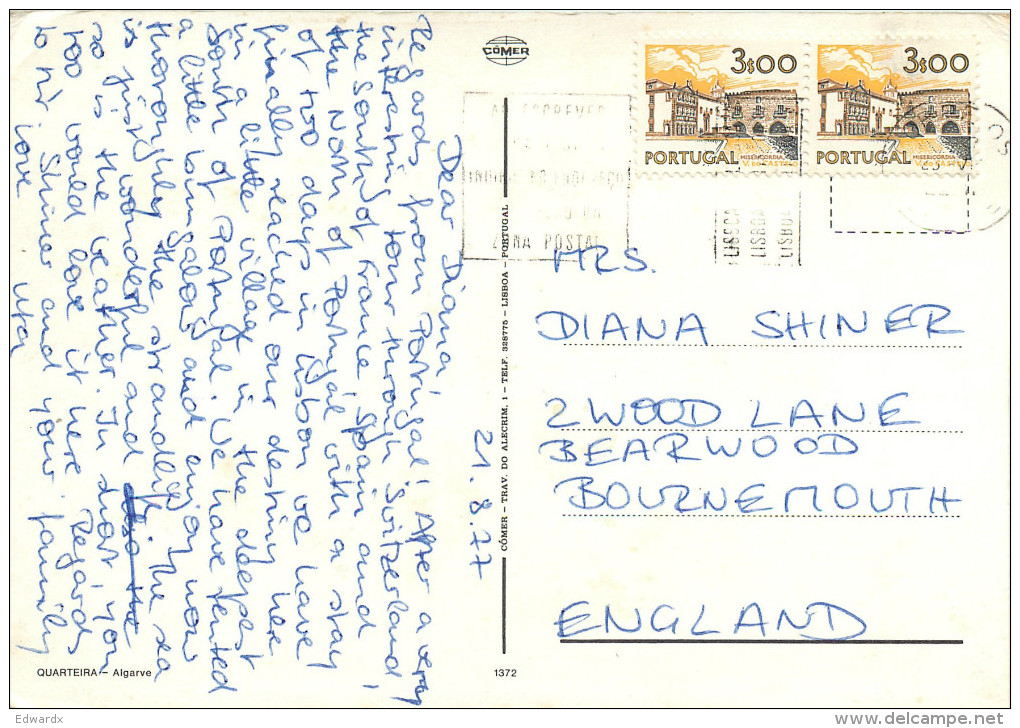 21.8.77
Dear Diana,
Regards from Portugal! After a very
intresting tour through Switzerland,
the South of France, Spain and
the North of Portugal with a stay
of two days in Lisbon we have
finally reached our destiny here
in a little village in the deepest
South of Portugal. We have rented
a little bungalow and enjoy now
thoroughly the strandlife. The sea
is just wonderful and
so is the weather. In short, you
too would love it here. Regards
to Mr Shiner and your family
love Uta
CÓMER
3$00
PORTUGAL
MISERICORDIA
V. DO CASTELO
3$00
PORTUGAL
MISERICORDIA
V. DO CASTELO
POSTAL
LISBOA
LISBOA
LISBOA
MRS.
DIANA SHINER
2 WOOD LANE
BEARWOOD
BOURNEMOUTH
ENGLAND
CÓMER — TRAV. DO ALECRIM, 1 — TELF. 328775 — LISBOA — PORTUGAL
QUARTEIRA — Algarve
1372
Edwardx
delcampe.net